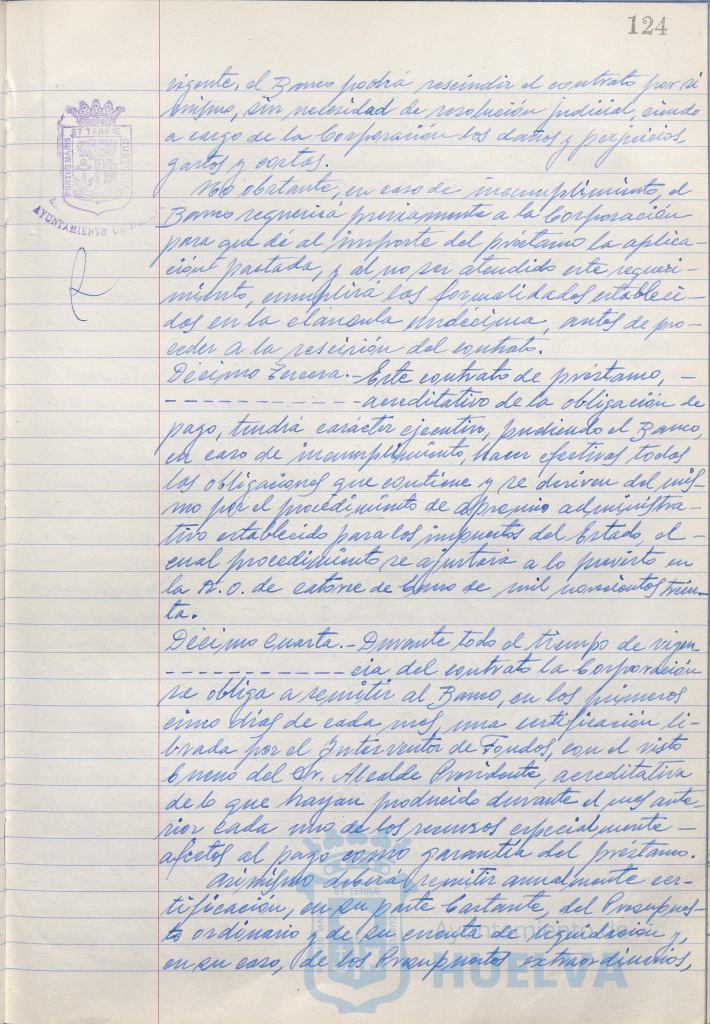 124
vigente, el Banco podrá rescindir el contrato por sí
mismo, sin necesidad de resolución judicial, siendo
a cargo de la Corporación los daños y perjuicios,
gastos y costas.
No obstante, en caso de incumplimiento, el
Banco requerirá previamente a la Corporación
para que dé al importe del préstamo la aplica-
ción pactada, y al no ser atendido este requeri-
miento, cumplirá las formalidades estableci-
das en la cláusula undécima, antes de pro-
ceder a la rescisión del contrato.
Décimo Tercera.- Este contrato de préstamo, -
- - - - - - - - - - - - acreditativo de la obligación de
pago, tendrá carácter ejecutivo, pudiendo el Banco,
en caso de incumplimiento, hacer efectivas todas
las obligaciones que contiene y se deriven del mis-
mo por el procedimiento de apremio administra-
tivo establecido para los impuestos del Estado, el
cual procedimiento se ajustará a lo previsto en
la R.O. de catorce de Enero de mil novecientos trein-
ta.
Décimo Cuarta.- Durante todo el tiempo de vigen
- - - - - - - - - - - cia del contrato la Corporación
se obliga a remitir al Banco, en los primeros
cinco días de cada mes, una certificación li-
brada por el Interventor de Fondos, con el visto
bueno del Sr. Alcalde Presidente, acreditativa
de lo que hayan producido durante el mes ante-
rior cada uno de los recursos especialmente -
afectos al pago como garantía del préstamo.
Asimismo deberá remitir anualmente cer-
tificación, en su parte bastante, del Presupues-
to ordinario y de su cuenta de liquidación y,
en su caso, de los Presupuestos extraordinarios,
ET TERRÆ
PORTUS MARIS
CUSTODIA
AYUNTAMIENTO DE HUELVA
ET TERRÆ
Ayuntamiento de
HUELVA